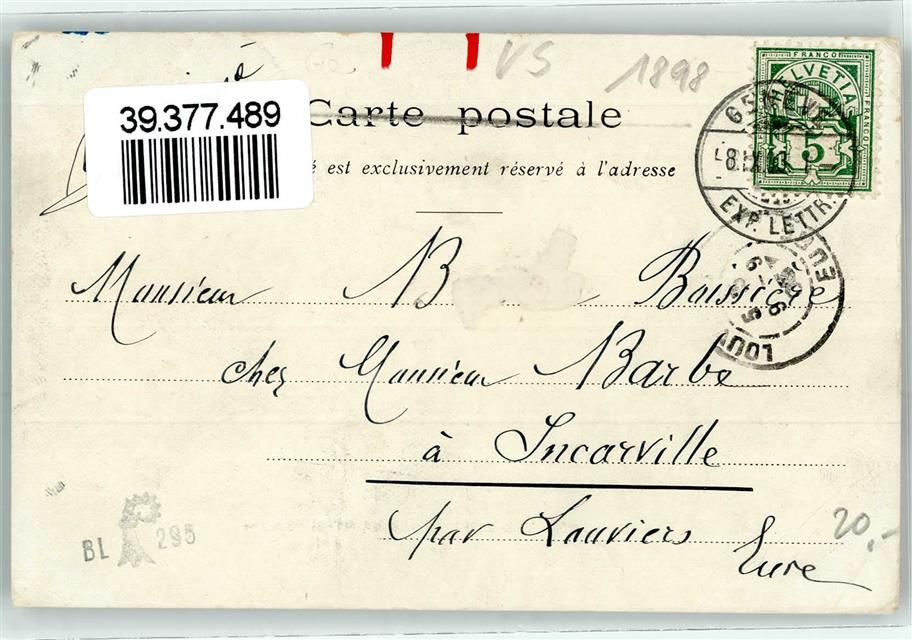 VS 1898
39.377.489
Carte postale
é est exclusivement réservé à l'adresse
FRANCO
HELVETIA
FRANCO
5
GENÈVE
EXP. LETTR.
LOUV
EURE
Monsieur B Boissière
chez Monsieur Barbe
à Incarville
par Louviers
Eure
20,-
BL 295